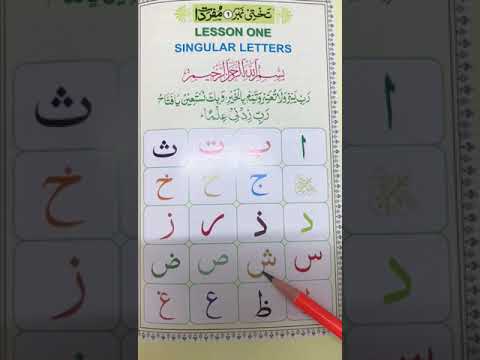 تختی نمبر ① مفردات
LESSON ONE
SINGULAR LETTERS
بِسْمِ اللهِ الرَّحْمٰنِ الرَّحِيْمِ
رَبِّ يَسِّرْ وَلَا تُعَسِّرْ وَتَمِّمْ بِالْخَيْرِ وَبِكَ نَسْتَعِيْنُ يَا فَتَّاحُ
رَبِّ زِدْنِيْ عِلْمًا
ا ب ت ث
ج ح خ
د ذ ر ز
س ش ص ض
ظ ع غ